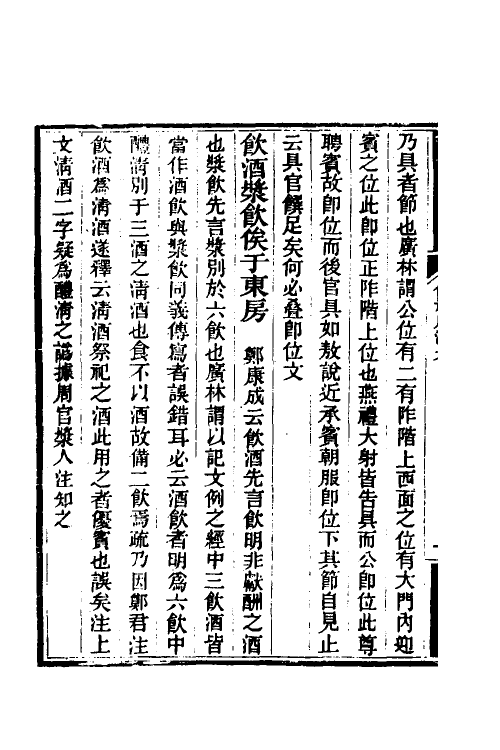 乃具者節也廣林謂公位有二有阼階上西面之位有大門內迎
賓之位此卽位正阼階上位也燕禮大射皆告具而公卽位此尊
聘賓故卽位而後官具如敖說近承賓朝服卽位下其節自見止
云具官饌足矣何必疊卽位文
飲酒漿飲俟于東房　鄭康成云飲酒先言飲明非獻酬之酒
也漿飲先言漿別於六飲也廣林謂以記文例之經中三飲酒皆
當作酒飲與漿飲同義傳寫者誤錯耳必云酒飲者明爲六飲中
醴淸別于三酒之淸酒也食不以酒故備二飲爲疏乃因鄭君注
飲酒爲淸酒遂釋云淸酒祭祀之酒此用之者優賓也誤矣注上
文淸酒二字疑爲醴淸之譌據周官漿人注知之